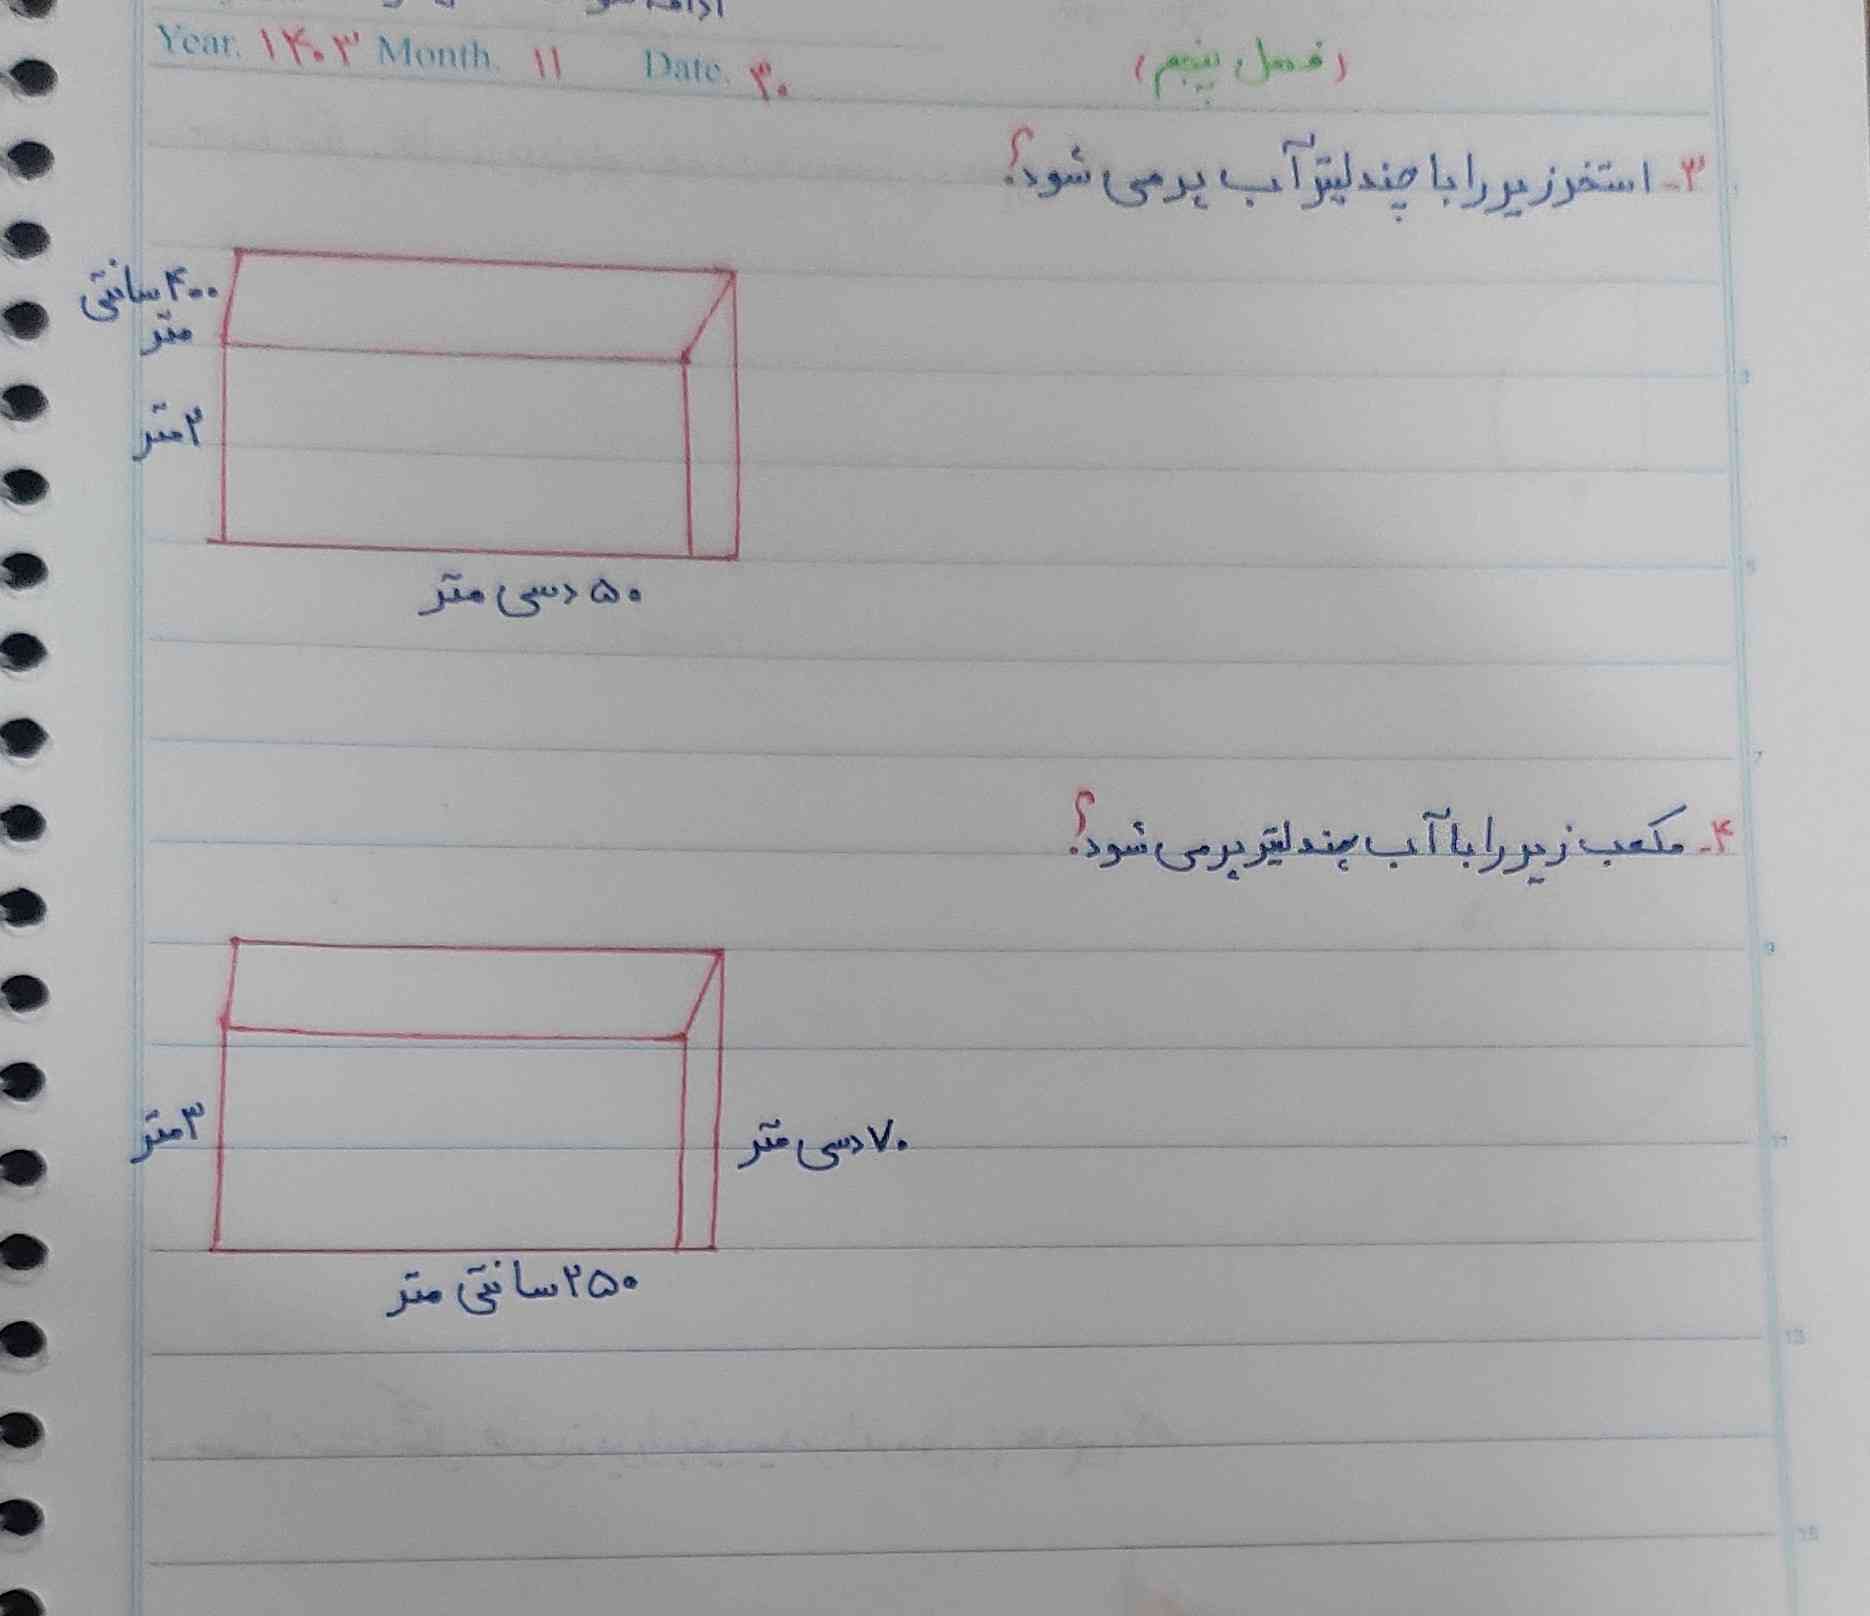 Year. ۱۴۰۳ Month. ۱۱ Date. ۳۰
(فصل پنجم)
۳- استخر زیر را با چند لیتر آب پر می شود؟
۴۰۰ سانتی
متر
۲متر
۵۰ دسی متر
۴- مکعب زیر را با آب چند لیتر پر می شود؟
۳متر
۷۰ دسی متر
۲۵۰ سانتی متر
3
5
7
9
11
13
15